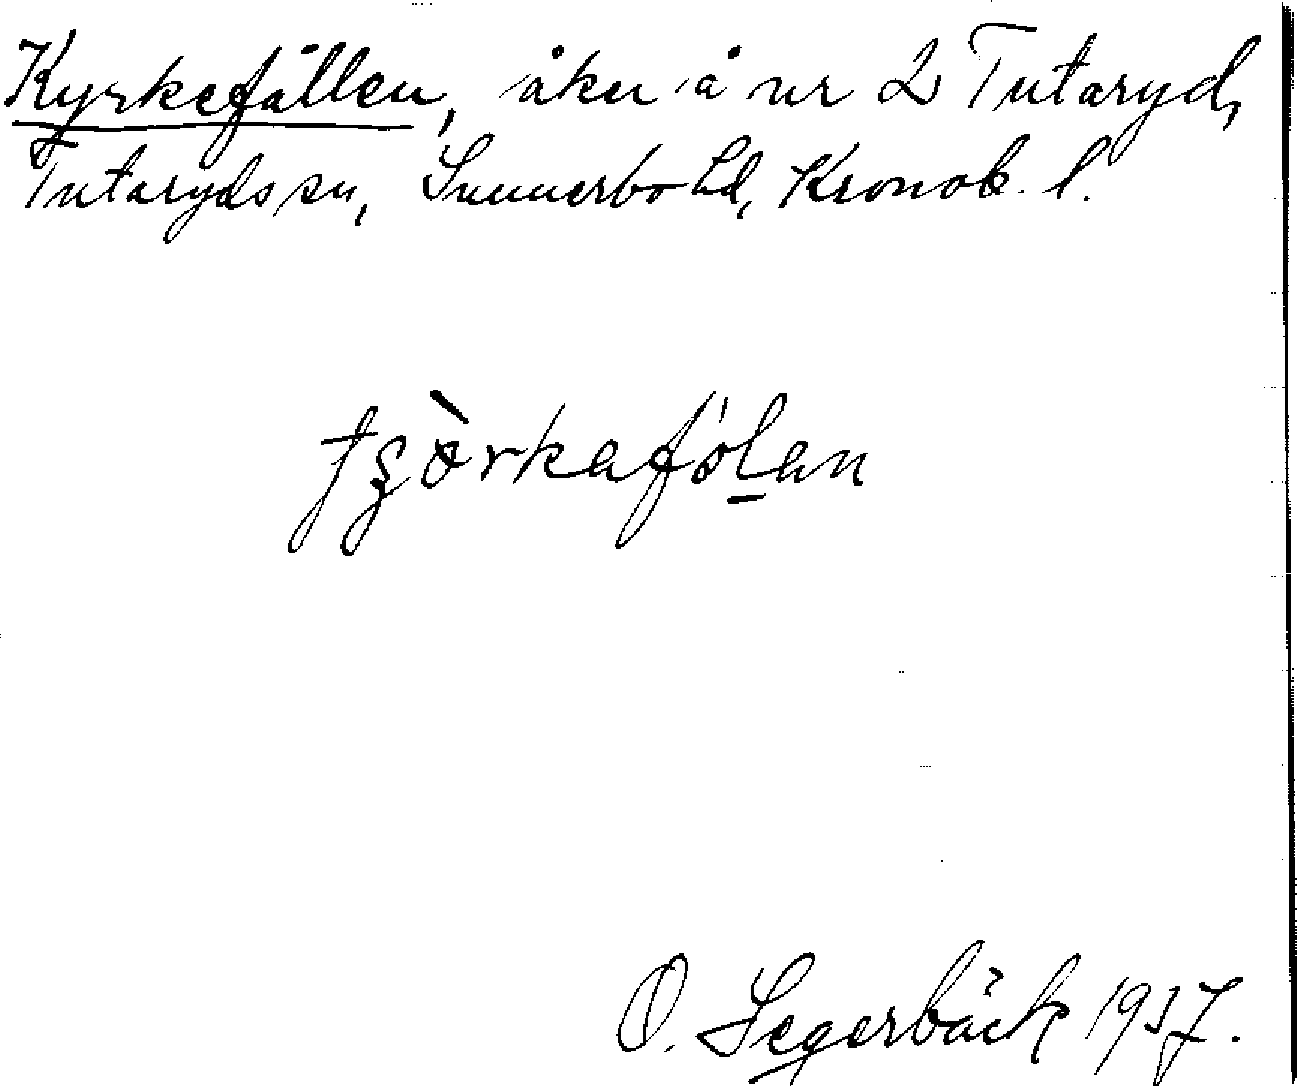 Kyrkefällen, åker å nr 2 Tutaryd,
Tutaryds sn, Sunnerbo hd, Kronob. l.
O. Segerbäck 1937.